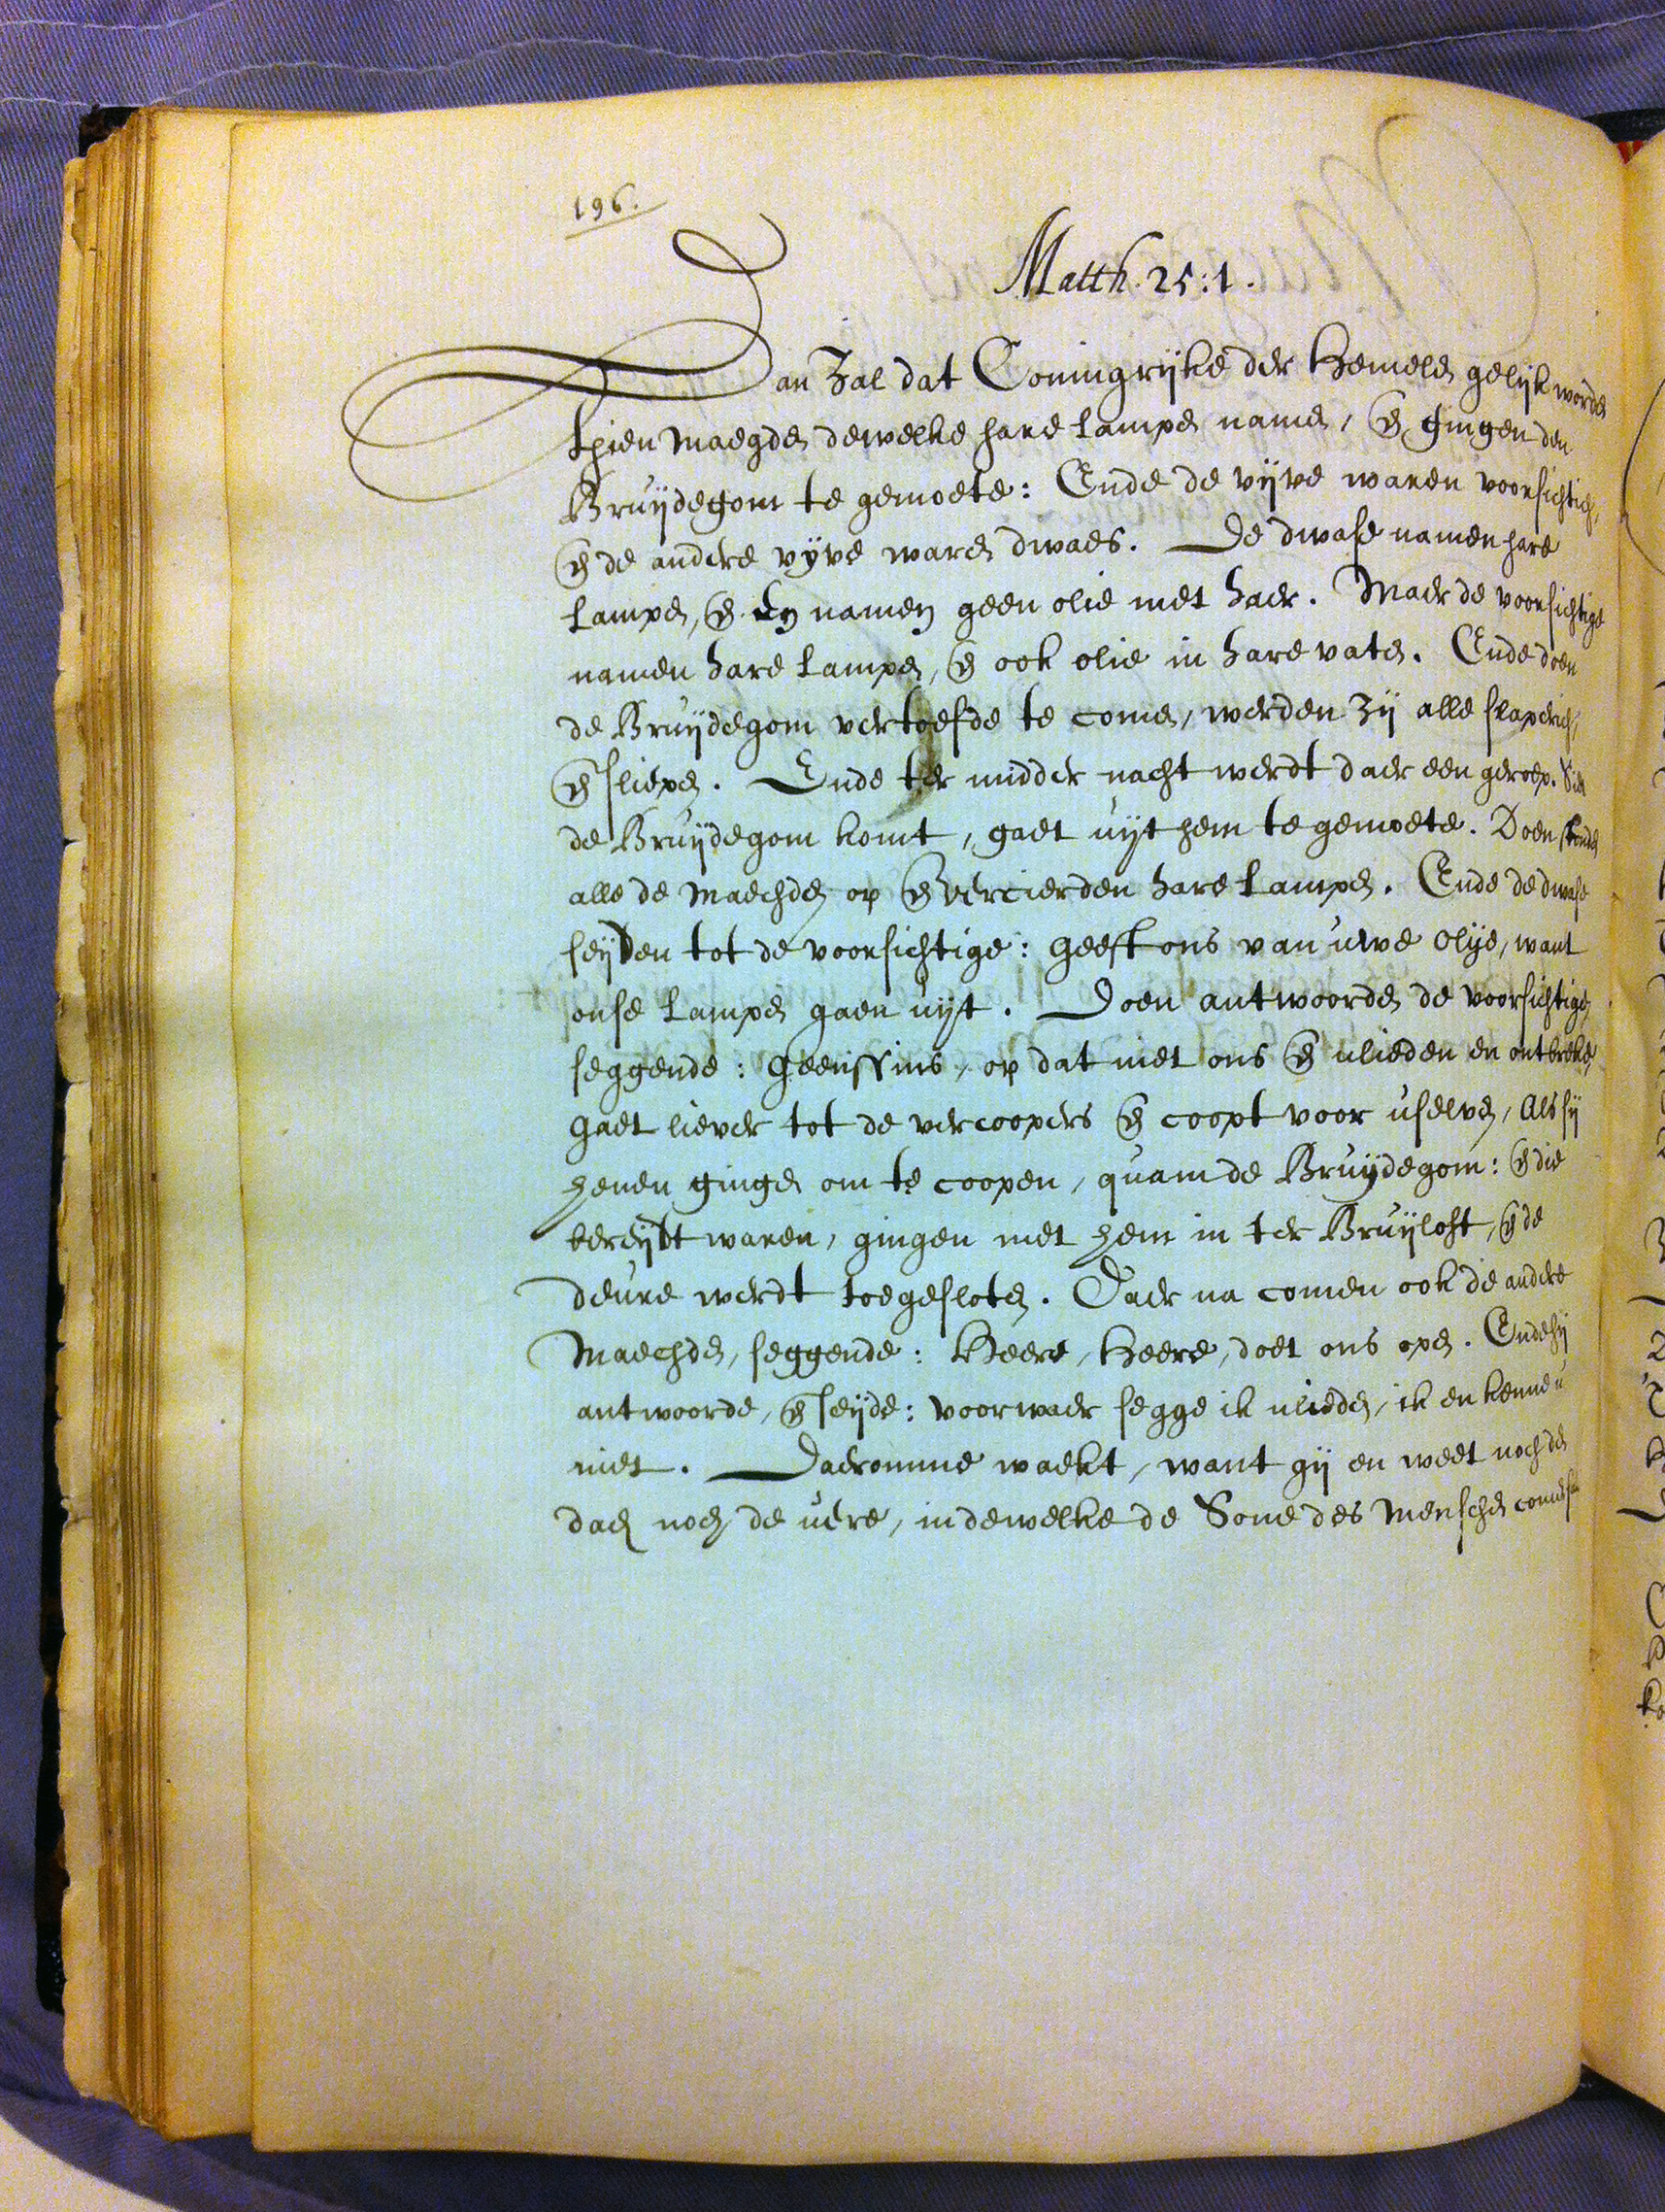 196.
Matth. 25:1.
Dan zal dat Coningrijke der Hemelen gelijk worden
thien maegden dewelke hare lampen namen, en gingen den
Bruijdegom te gemoete: Ende de vijve waren voorsichtich,
en de andere vyve waren dwaes. De dwase namen hare
lampen, en en namen geen olie met haer. Maer de voorsichtige
namen hare lampen, en ook olie in hare vaten. Ende doen
de Bruijdegom vertoefde te comen, werden zij alle slaperich,
en sliepen. Ende ter midder nacht werdt daer een geroep. Siet
de Bruijdegom komt, gaet uijt hem te gemoete. Doen stonden
alle de Maechden op en vercierden hare lampen. Ende de dwase
seijden tot de voorsichtige: geeft ons van uwe olije, want
onse lampen gaen uijt. Doen antwoorden de voorsichtige,
seggende: Geenssins, op dat niet ons en ulieden en ontbreke,
gaet liever tot de vercoopers en coopt voor uselven, Als sij
henen gingen om te coopen, quam de Bruijdegom: en die
bereijdt waren, gingen met hem in ter Bruijloft, en de
deure werdt toegesloten. Daer na comen ook de andere
Maechden, seggende: Heere, Heere, doet ons open. Ende hij
antwoorde, en seijde: voorwaer segge ik ulieden, ik en kenne u
niet. Daeromme waekt, want gij en weet noch den
dach noch de uere, in dewelke de Sone des Menschen comen sal